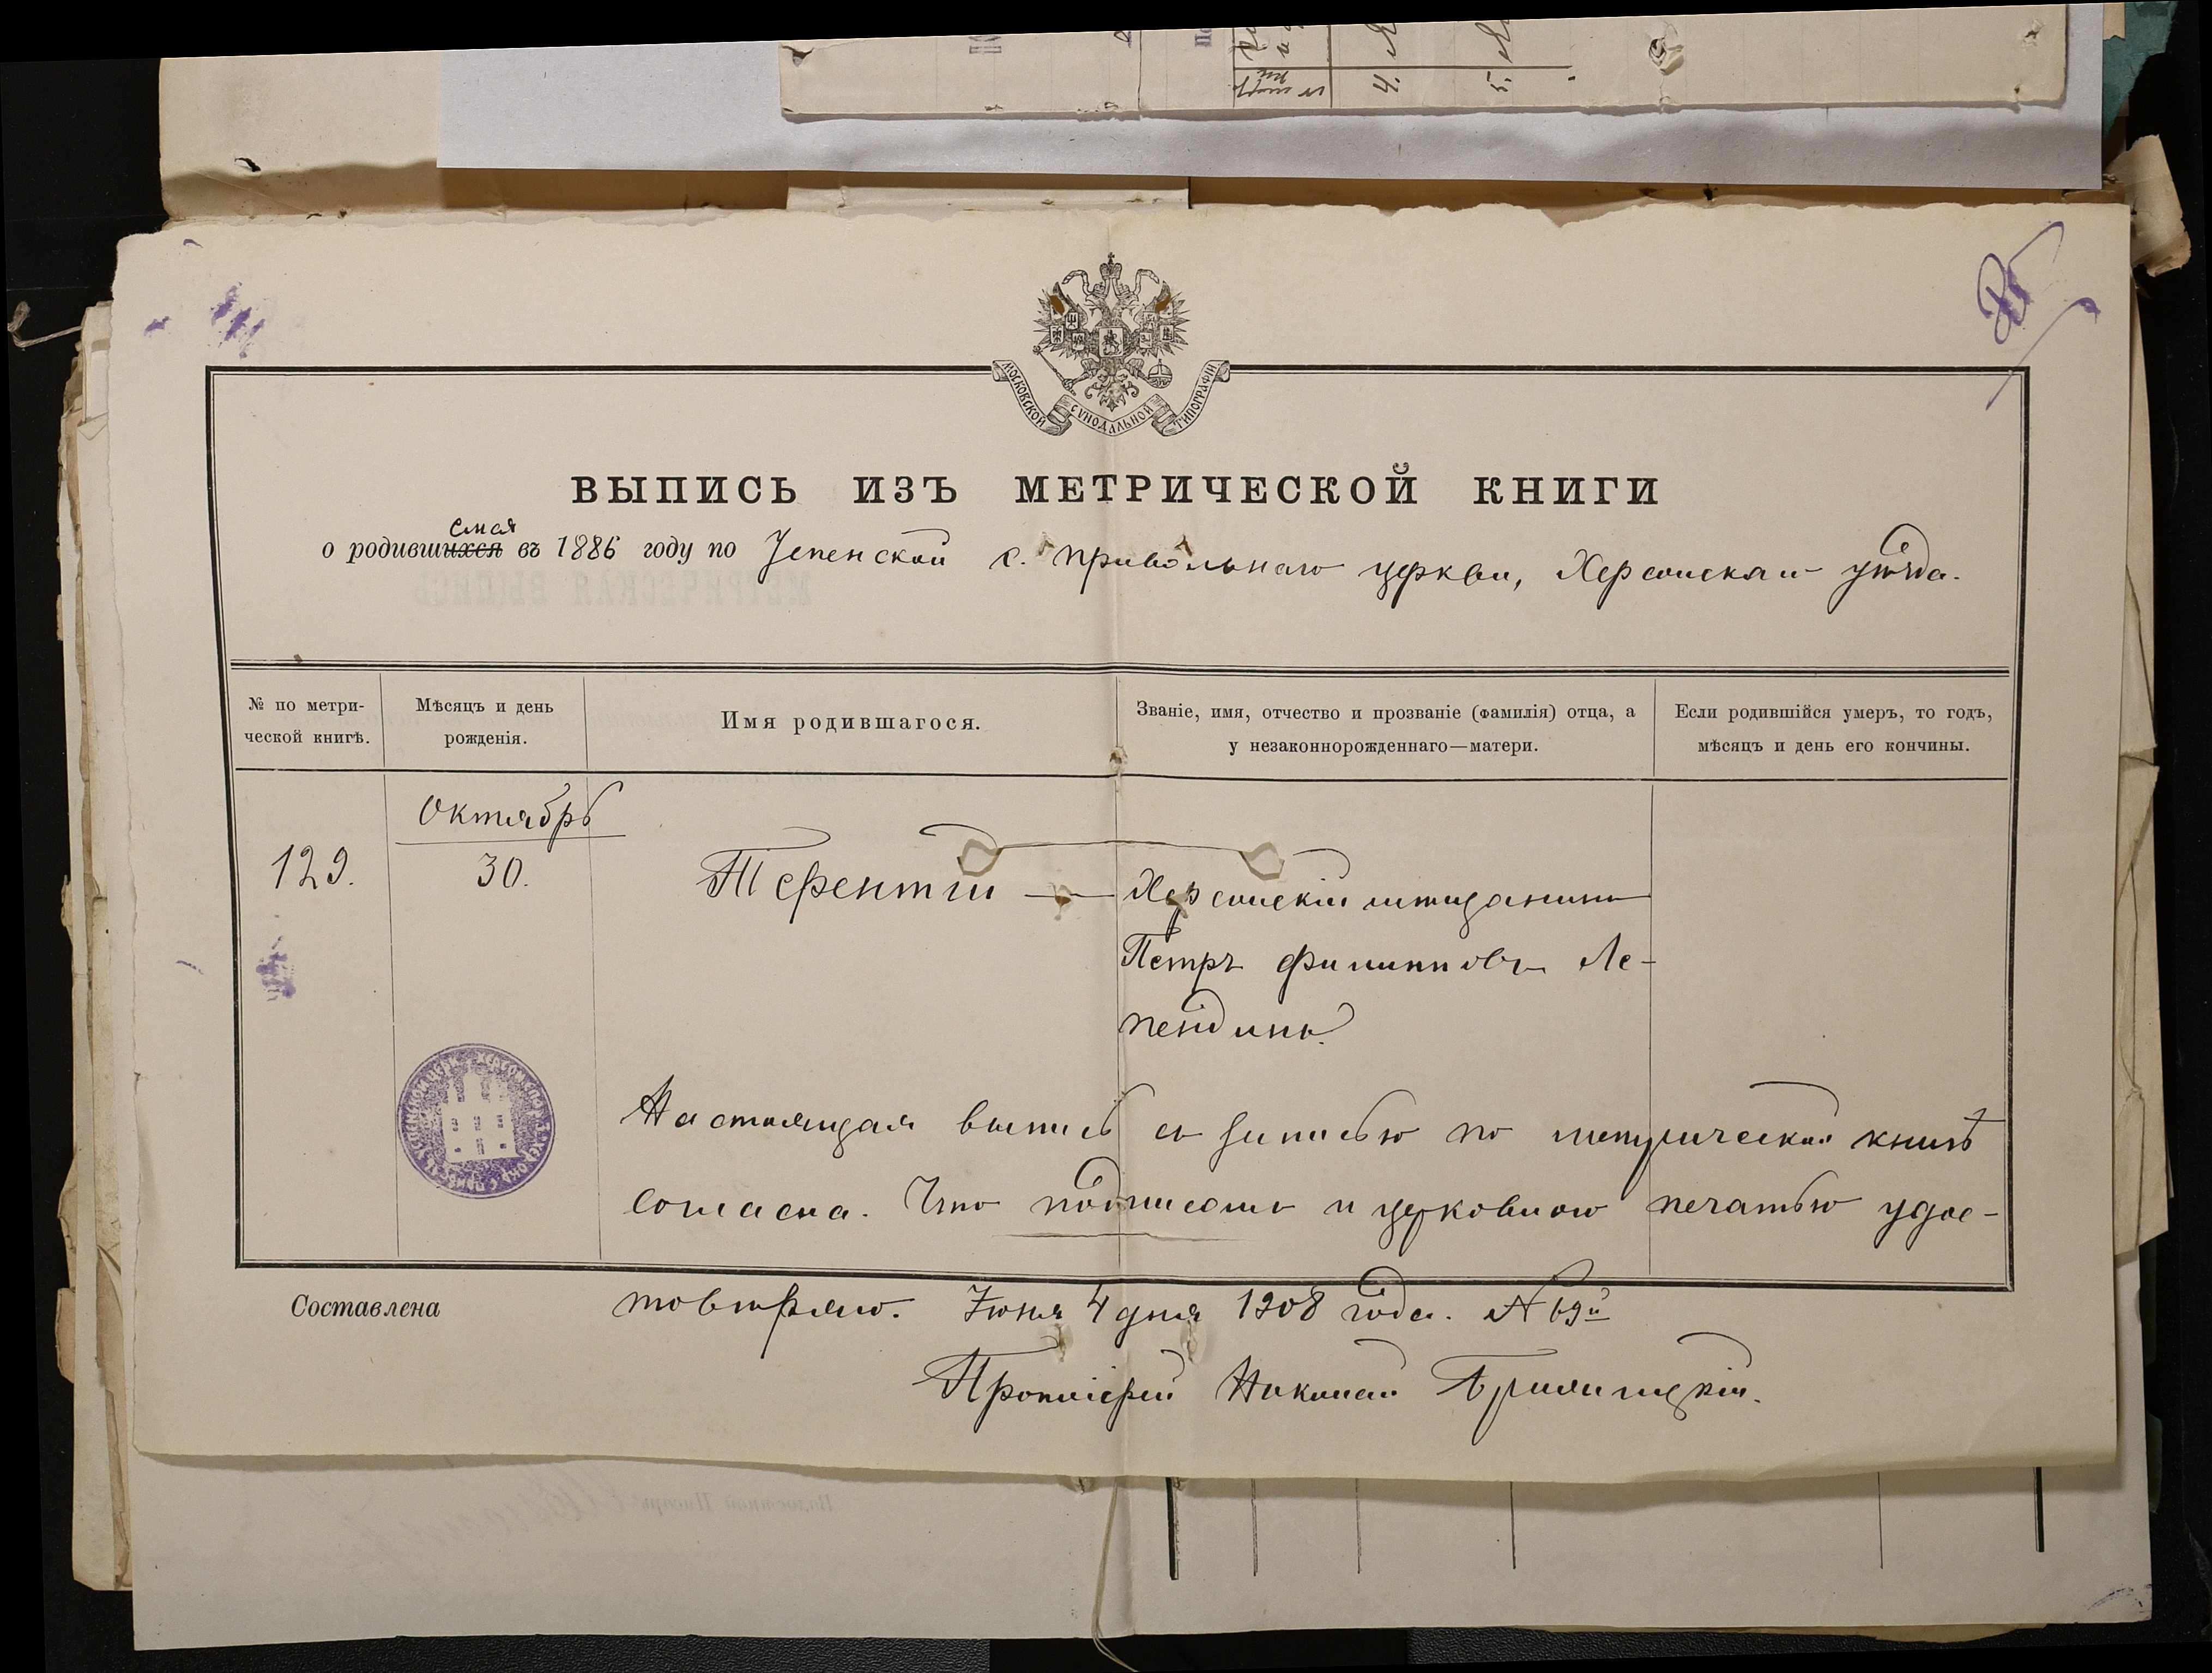 МОСКОВСКОЙ СѴНОДАЛЬНОЙ ТИПОГРАФІИ
ВЫПИСЬ ИЗЪ МЕТРИЧЕСКОЙ КНИГИ
емся
о родившихся въ 1886 году по Успенской с. Привольнаго церкви, Херсонскаго уѣзда.
№ по метри-
ческой книгѣ.
Мѣсяцъ и день
рожденія.
Имя родившагося.
Званіе, имя, отчество и прозваніе (фамилія) отца, а
у незаконнорожденнаго—матери.
Если родившійся умеръ, то годъ,
мѣсяцъ и день его кончины.
Октябрь
129.
30.
Терентій — Херсонскій мѣщанинъ
Петръ Филипповъ Ле-
пендинъ.
Настоящая выпись съ записью по метрической книгѣ
согласна. Что подписомъ и церковною печатью удос-
Составлена
товѣряю. Іюня 4 дня 1908 года. № 69й
Протоіерей Николай